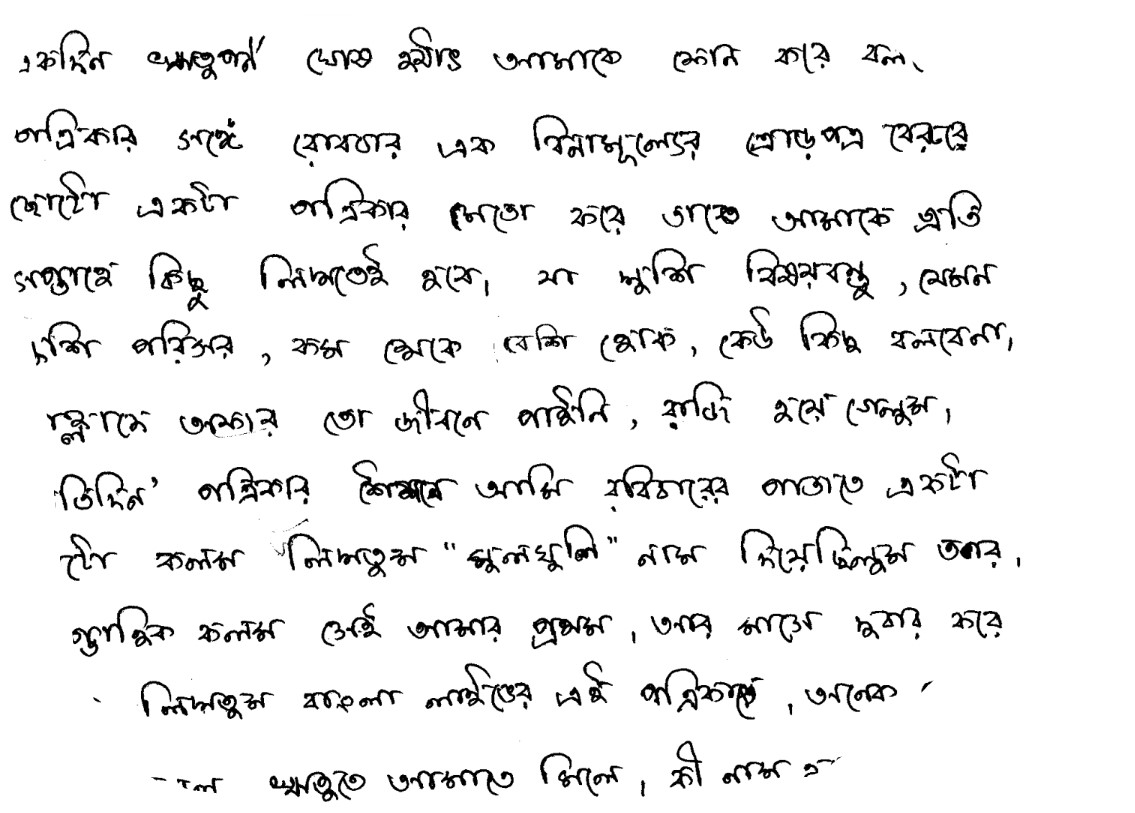 একদিন ঋতুপর্ণ ঘোষ হঠাৎ আমাকে ফোন করে বল
পত্রিকার সঙ্গে রোববার এক বিনামূল্যের ক্রোড়পত্র বেরুবে
ছোটো একটা পত্রিকার মতো করে তাতে আমাকে প্রতি
সপ্তাহে কিছু লিখতেই হবে। যা খুশি বিষয়বস্তু, যেমন
খুশি পরিসর, কম থেকে বেশি হোক, কেউ কিছু বলবেনা।
অফার তো জীবনে পাইনি, রাজি হয়ে গেলুম।
তিদিন' পত্রিকার শৈশবে আমি রবিবারের পাতাতে একটা
টো কলম লিখতুম "ঘুলঘুলি" নাম দিয়েছিলুম তার।
প্তাহিক কলম সেই আমার প্রথম, আর মাসে দুবার করে
লিখতুম বাংলা লাইভের এই পত্রিকাতে, অনেক
ঋতুতে আমাতে মিলে, কী নাম